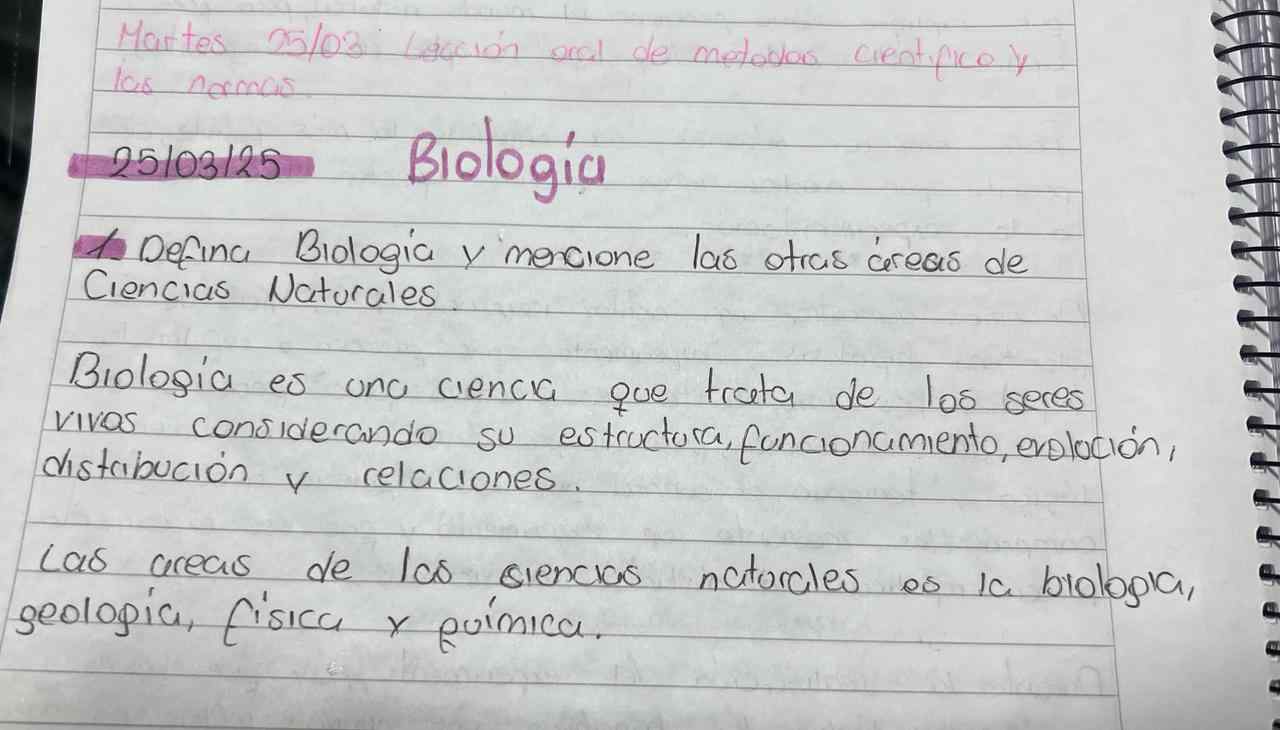 Martes 25/03 Lección oral de metodos cientifico y
las normas
25/03/25 Biología
1. Defina Biología y mencione las otras áreas de
Ciencias Naturales.
Biología es una ciencia que trata de los seres
vivos considerando su estructura, funcionamiento, evolución,
distribución y relaciones.
Las areas de las siencias naturales es la biologia,
geología, física y química.